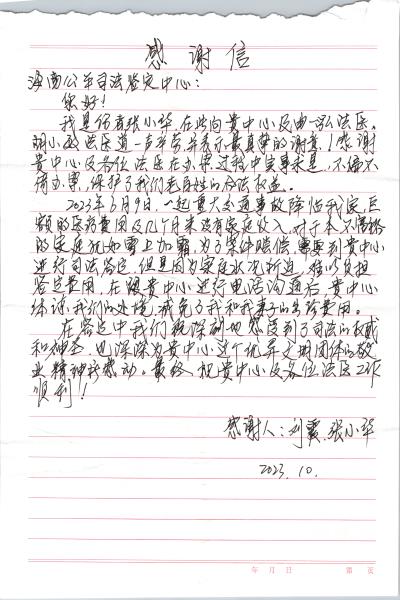 感谢信
海南公平司法鉴定中心:
您好!
我是伤者张小华,在此向贵中心及曲一泓法医、
胡小 法医道一声辛劳并表示最真挚的谢意!感谢
贵中心及各位法医在办案过程中实事求是、不偏不
倚办案,维护了我们老百姓的合法权益。
2023年3月9日,一起重大交通事故降临我家,巨
额的医疗费用及几个月来没有家庭收入,对于本不富裕
的家庭犹如雪上加霜,为了案件赔偿,需要到贵中心
进行司法鉴定,但是因为家庭状况窘迫,难以负担
鉴定费用,在跟贵中心进行电话沟通后,贵中心
体谅我们的处境,减免了我和我妻子的鉴定费用。
在鉴定中我们能深刻地感受到了司法的权威
和神圣,也深深为贵中心这个优异文明团体的敬
业精神所感动。最终祝贵中心及各位法医工作
顺利!
感谢人:刘霞、张小华
2023.10.
年 月 日 第 页